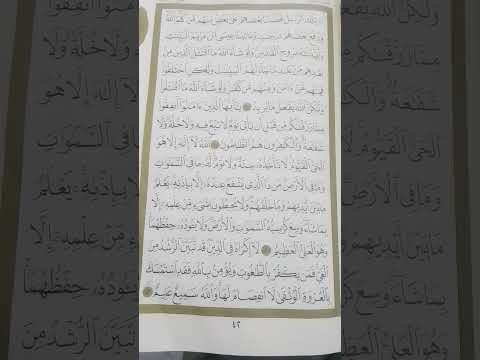 تِلْكَ ٱلرُّسُلُ فَضَّلْنَا بَعْضَهُمْ عَلَىٰ بَعْضٍ مِّنْهُم مَّن كَلَّمَ ٱللَّهُ
وَرَفَعَ بَعْضَهُمْ دَرَجَٰتٍ وَءَاتَيْنَا عِيسَى ٱبْنَ مَرْيَمَ ٱلْبَيِّنَٰتِ
وَأَيَّدْنَٰهُ بِرُوحِ ٱلْقُدُسِ وَلَوْ شَآءَ ٱللَّهُ مَا ٱقْتَتَلَ ٱلَّذِينَ مِنۢ
بَعْدِهِم مِّنۢ بَعْدِ مَا جَآءَتْهُمُ ٱلْبَيِّنَٰتُ وَلَٰكِنِ ٱخْتَلَفُوا۟
فَمِنْهُم مَّنْ ءَامَنَ وَمِنْهُم مَّن كَفَرَ وَلَوْ شَآءَ ٱللَّهُ مَا ٱقْتَتَلُوا۟
وَلَٰكِنَّ ٱللَّهَ يَفْعَلُ مَا يُرِيدُ يَٰٓأَيُّهَا ٱلَّذِينَ ءَامَنُوٓا۟ أَنفِقُوا۟
مِمَّا رَزَقْنَٰكُم مِّن قَبْلِ أَن يَأْتِىَ يَوْمٌ لَّا بَيْعٌ فِيهِ وَلَا خُلَّةٌ وَلَا
شَفَٰعَةٌ وَٱلْكَٰفِرُونَ هُمُ ٱلظَّٰلِمُونَ ٱللَّهُ لَآ إِلَٰهَ إِلَّا هُوَ
ٱلْحَىُّ ٱلْقَيُّومُ لَا تَأْخُذُهُۥ سِنَةٌ وَلَا نَوْمٌ لَّهُۥ مَا فِى ٱلسَّمَٰوَٰتِ
وَمَا فِى ٱلْأَرْضِ مَن ذَا ٱلَّذِى يَشْفَعُ عِندَهُۥٓ إِلَّا بِإِذْنِهِۦ يَعْلَمُ
مَا بَيْنَ أَيْدِيهِمْ وَمَا خَلْفَهُمْ وَلَا يُحِيطُونَ بِشَىْءٍ مِّنْ عِلْمِهِۦٓ إِلَّا
بِمَا شَآءَ وَسِعَ كُرْسِيُّهُ ٱلسَّمَٰوَٰتِ وَٱلْأَرْضَ وَلَا يَـُٔودُهُۥ حِفْظُهُمَا
وَهُوَ ٱلْعَلِىُّ ٱلْعَظِيمُ لَآ إِكْرَاهَ فِى ٱلدِّينِ قَد تَّبَيَّنَ ٱلرُّشْدُ مِنَ
ٱلْغَىِّ فَمَن يَكْفُرْ بِٱلطَّٰغُوتِ وَيُؤْمِنۢ بِٱللَّهِ فَقَدِ ٱسْتَمْسَكَ
بِٱلْعُرْوَةِ ٱلْوُثْقَىٰ لَا ٱنفِصَامَ لَهَا وَٱللَّهُ سَمِيعٌ عَلِيمٌ
٤٢